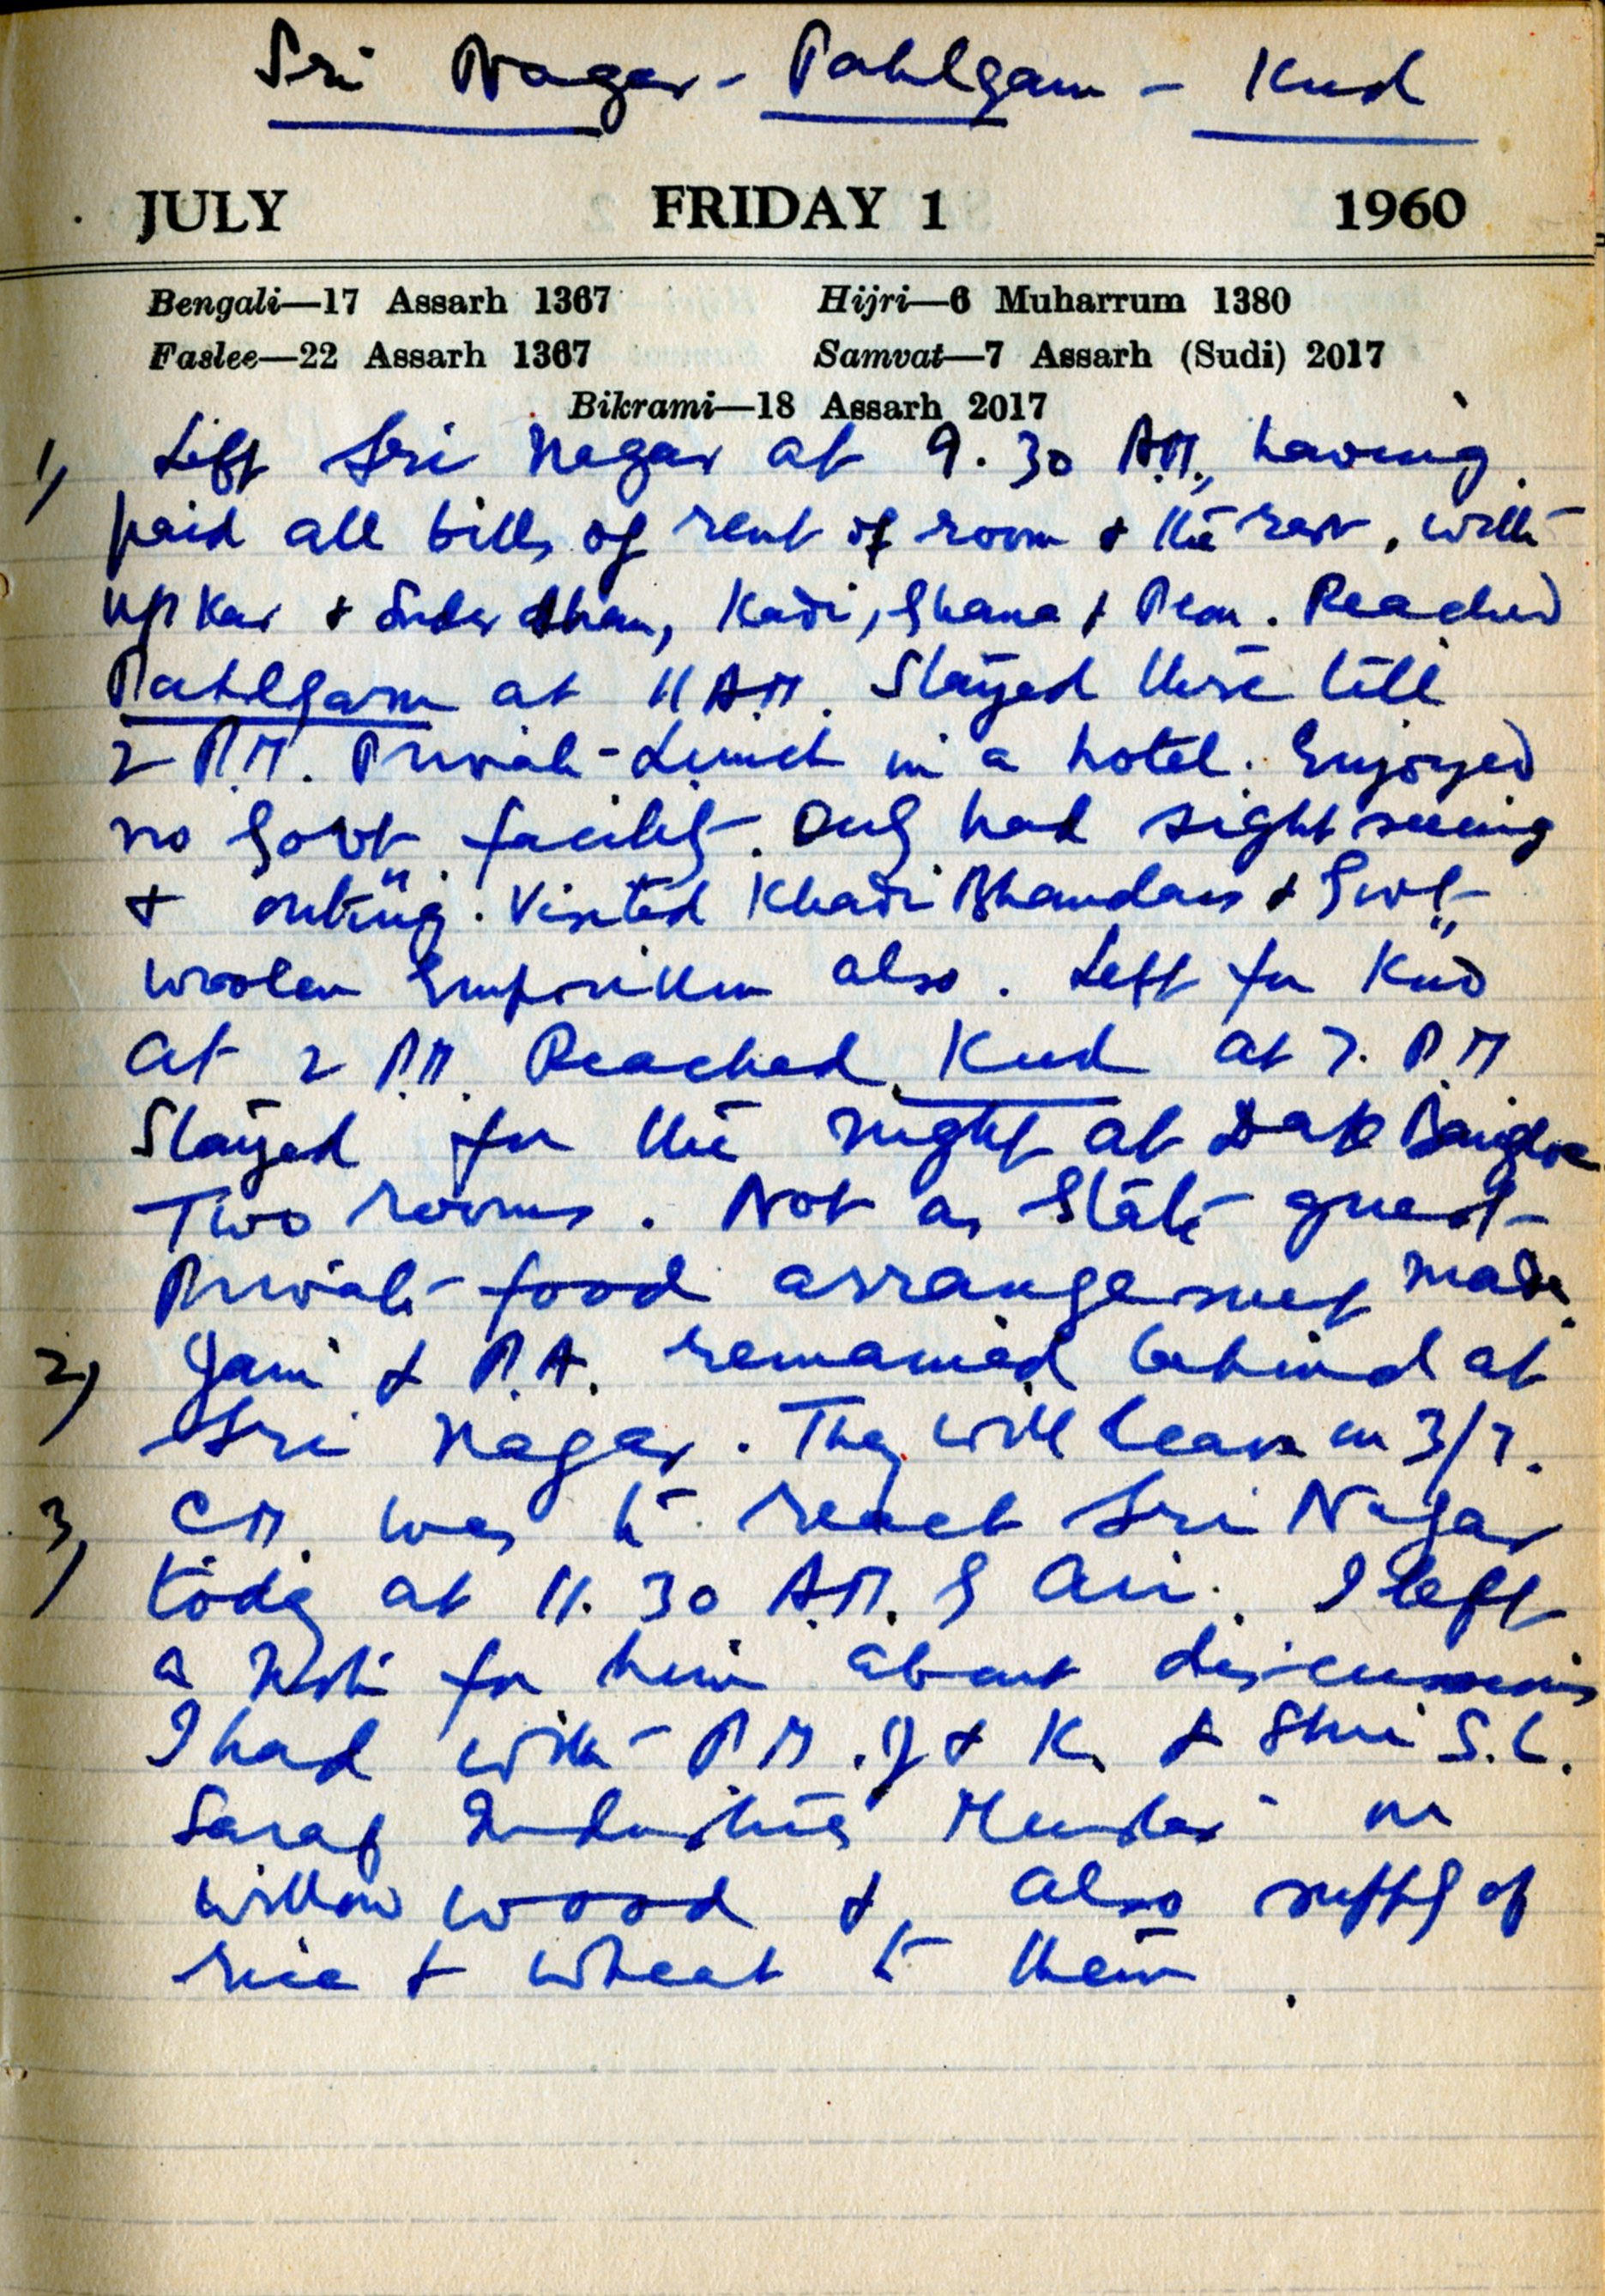 Sri Nagar - Pahlgam - Kud
JULY FRIDAY 1 1960
Bengali—17 Assarh 1367 Hijri—6 Muharrum 1380
Faslee—22 Assarh 1367 Samvat—7 Assarh (Sudi) 2017
Bikrami—18 Assarh 2017
1) Left Sri Nagar at 9.30 A.M., having
paid all bills of rent of room & the rest, with
Upkar & Kadi, & Peon. Reached
Pahlgam at 11 A.M. Stayed there till
2 P.M. Private Lunch in a hotel. Enjoyed
no Govt. facility. Only had sight seeing
& outing. Visited Khadi Bhandar & Govt.
Woolen Emporium also. Left for Kud
at 2 P.M. Reached Kud at 7. P.M
Stayed for the night at Dak Banglow
Two rooms. Not as State guest
Private food arrangement made.
2) & P.A. remained behind at
Sri Nagar. They will leave on 3/7.
3) C.M. was to reach Sri Nagar
today at 11.30 A.M. by Air. I left
a Note for him about discussions
I had with P.M. J & K. & Shri S.L.
Saraf Industries Minister on
Willow wood & also supply of
rice & wheat to them.